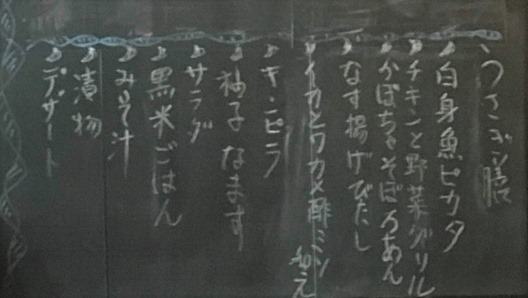 うさぎ膳
白身魚ピカタ
チキンと野菜グリル
かぼちゃそぼろあん
なす揚げびたし
イカとワカメ酢ミソ和え
キンピラ
柚子なます
サラダ
黒米ごはん
みそ汁
漬物
デザート